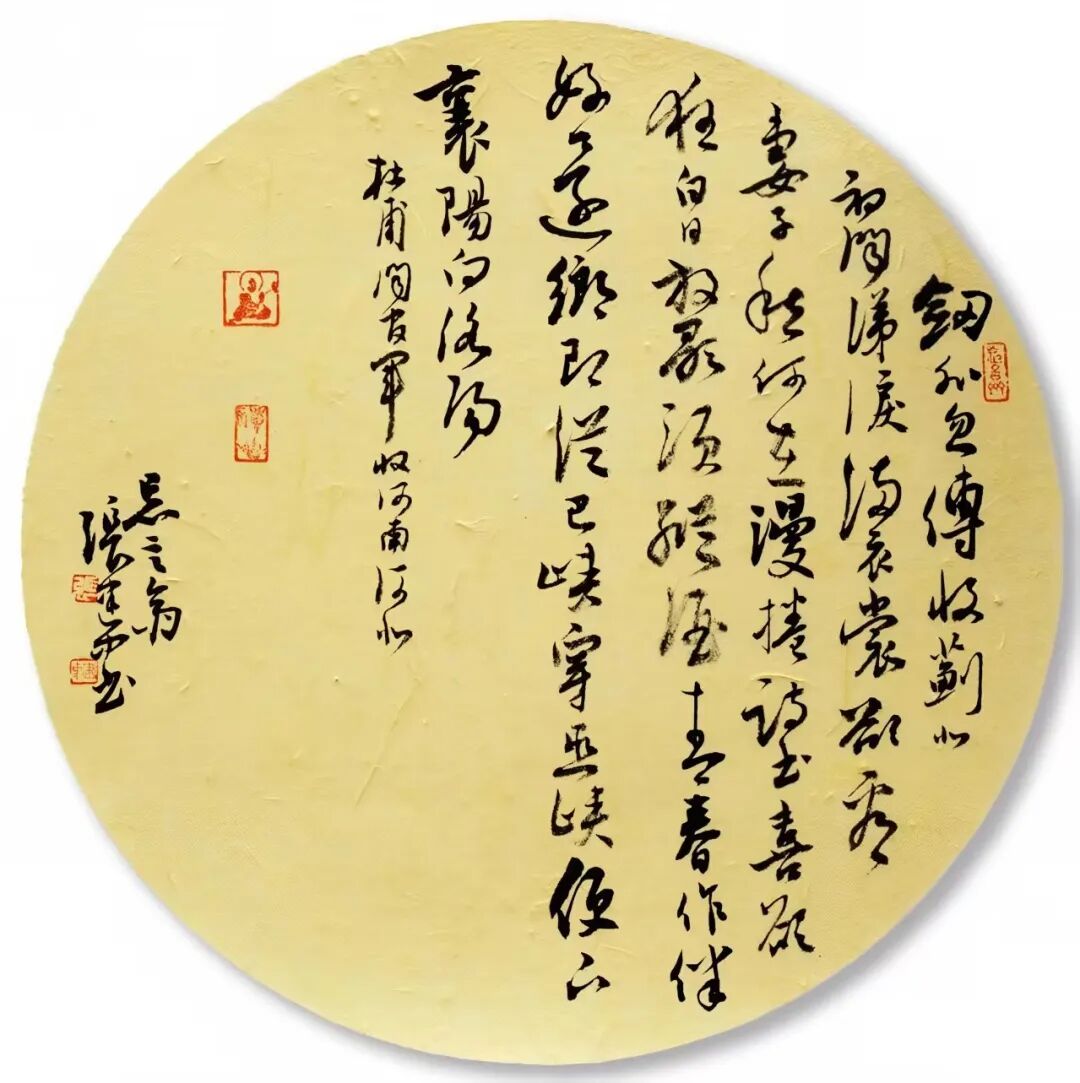 釼外忽傳收薊北
初聞涕淚滿衣裳卻看
妻子愁何在漫捲詩书喜欲
狂白日放歌須縱酒青春作伴
好還鄉即從巴峽穿巫峽便下
襄陽向洛陽
杜甫聞官軍收河南河北
之翁
張书